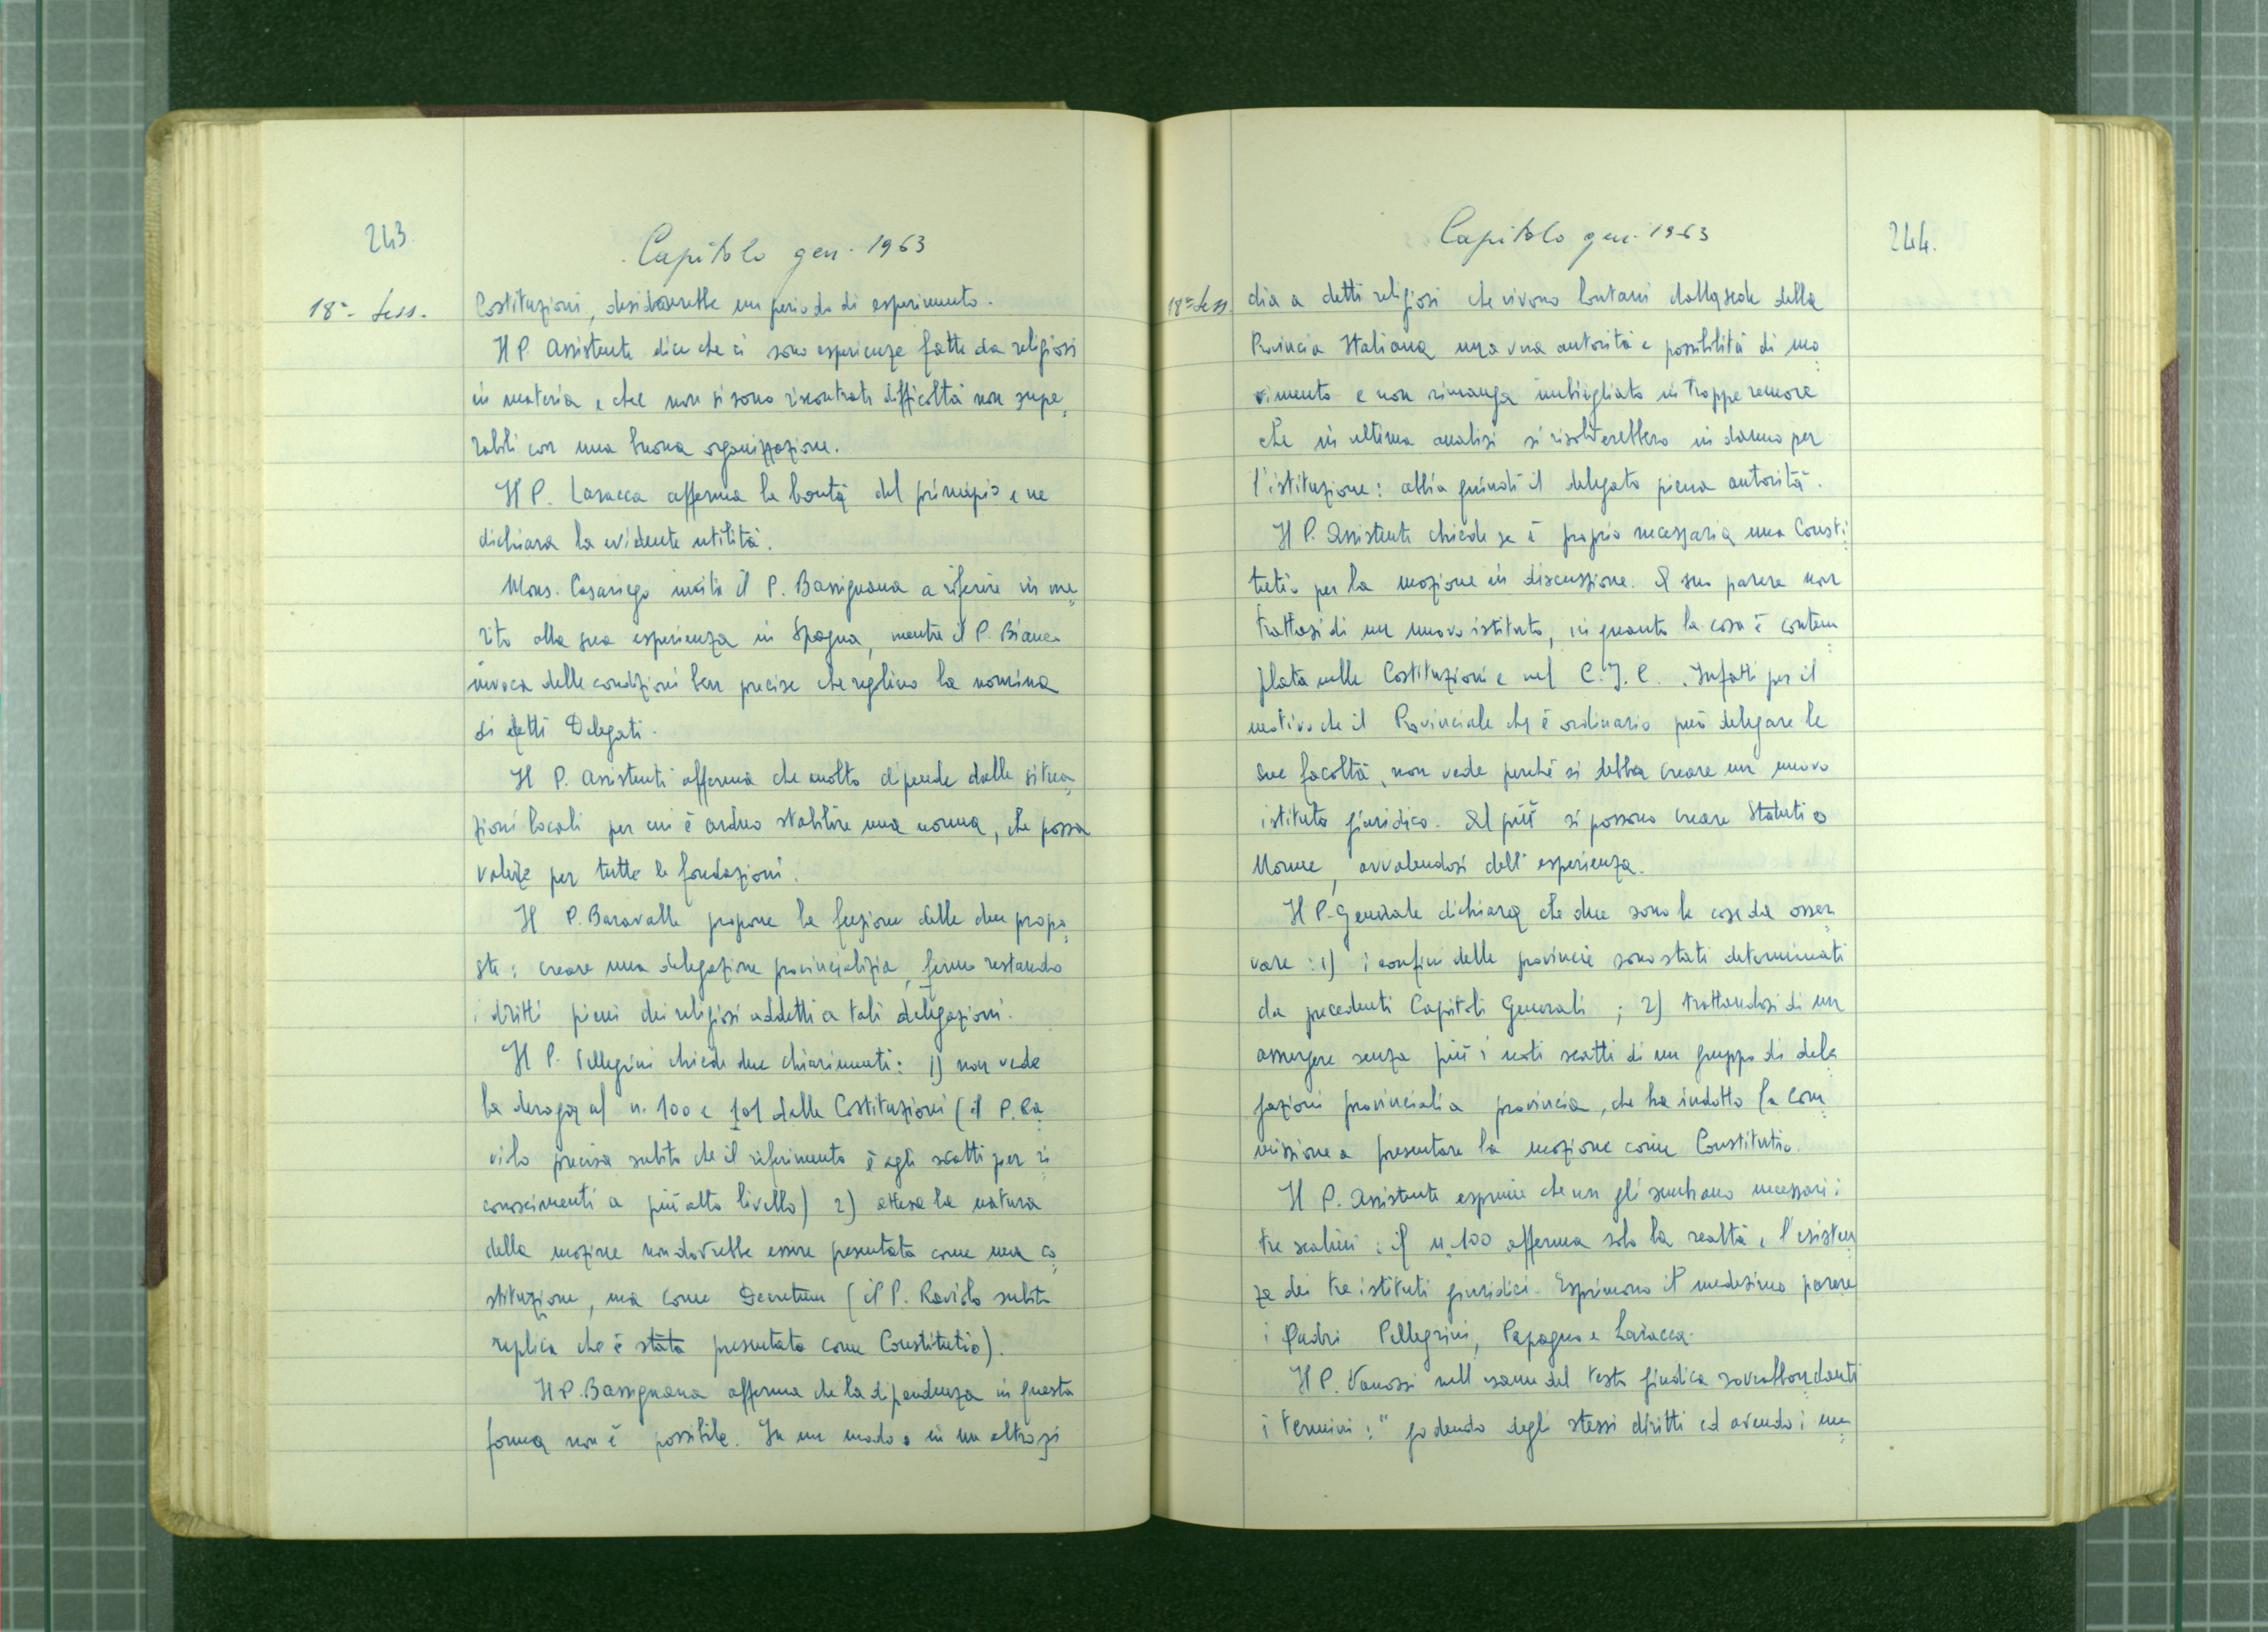 243.
Capitolo gen. 1963
18ª Sess.
Costituzioni, desidererebbe un periodo di esperimento.
Il P. Assistente dice che ci sono esperienze fatte da religiosi
in materia e che non si sono riscontrate difficoltà non supe=
rabili con una buona organizzazione.
Il P. Laracca afferma la bontà del principio e ne
dichiara la evidente utilità.
Mons. Casariego invita il P. Bassignana a riferire in me=
rito alla sua esperienza in Spagna, mentre il P. Bianco
invoca delle condizioni ben precise che regolino la nomina
di detti Delegati.
Il P. Assistente afferma che molto dipende dalle situa=
zioni locali per cui è arduo stabilire una norma, che possa
valere per tutte le fondazioni.
Il P. Baravalle propone la fusione delle due propo=
ste: creare una delegazione provincializia, fermo restando
i diritti pieni dei religiosi addetti a tali delegazioni.
Il P. Pellegrini chiede due chiarimenti: 1) non vede
la deroga al n. 100 e 101 delle Costituzioni (il P. Ra=
violo precisa subito che il riferimento è agli scatti per ri=
conoscimenti a più alto livello) 2) attesa la natura
della mozione non dovrebbe essere presentata come una co=
stituzione, ma come Decretum (il P. Raviolo subito
replica che è stata presentata come Constitutio).
Il P. Bassignana afferma che la dipendenza in questa
forma non è possibile. In un modo o in un altro si
Capitolo gen. 1963
244.
18ª Sess.
dia a detti religiosi che vivono lontani dalla sede della
Provincia Italiana una vera autorità e possibilità di mo=
vimento e non rimanga imbrigliato in troppe remore
che in ultima analisi si risolverebbero in danno per
l'istituzione: abbia quindi il delegato piena autorità.
Il P. Assistente chiede se è proprio necessaria una Consti=
tutio per la mozione in discussione. A suo parere non
trattasi di un nuovo istituto, in quanto la cosa è contem=
plata nelle Costituzioni e nel C.J.C. Infatti per il
motivo che il Provinciale che è ordinario può delegare le
sue facoltà, non vede perché si debba creare un nuovo
istituto giuridico. Al più si possono creare Statuti o
Norme, avvalendosi dell'esperienza.
Il P. Generale dichiara che due sono le cose da osser=
vare: 1) i confini delle provincie sono stati determinati
da precedenti Capitoli Generali; 2) trattandosi di un
assurgere senza più i noti scatti di un gruppo di dele=
gazioni provinciali a provincia, che ha indotto la Com=
missione a presentare la mozione come Constitutio.
Il P. Assistente esprime che non gli sembrano necessari i
tre scalini: il n. 100 afferma solo la realtà, l'esisten=
za dei tre istituti giuridici. Esprimono il medesimo parere
i Padri Pellegrini, Papagno e Laracca.
Il P. Vanossi nell'esame del testo giudica sovrabbondanti
i termini: "godendo degli stessi diritti ed avendo i me=